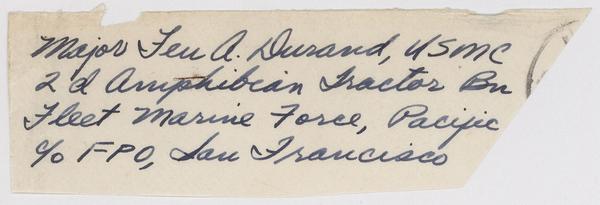 Major Feu A. Durand, USMC
2d Amphibian Tractor Bn
Fleet Marine Force, Pacific
c/o FPO, San Francisco